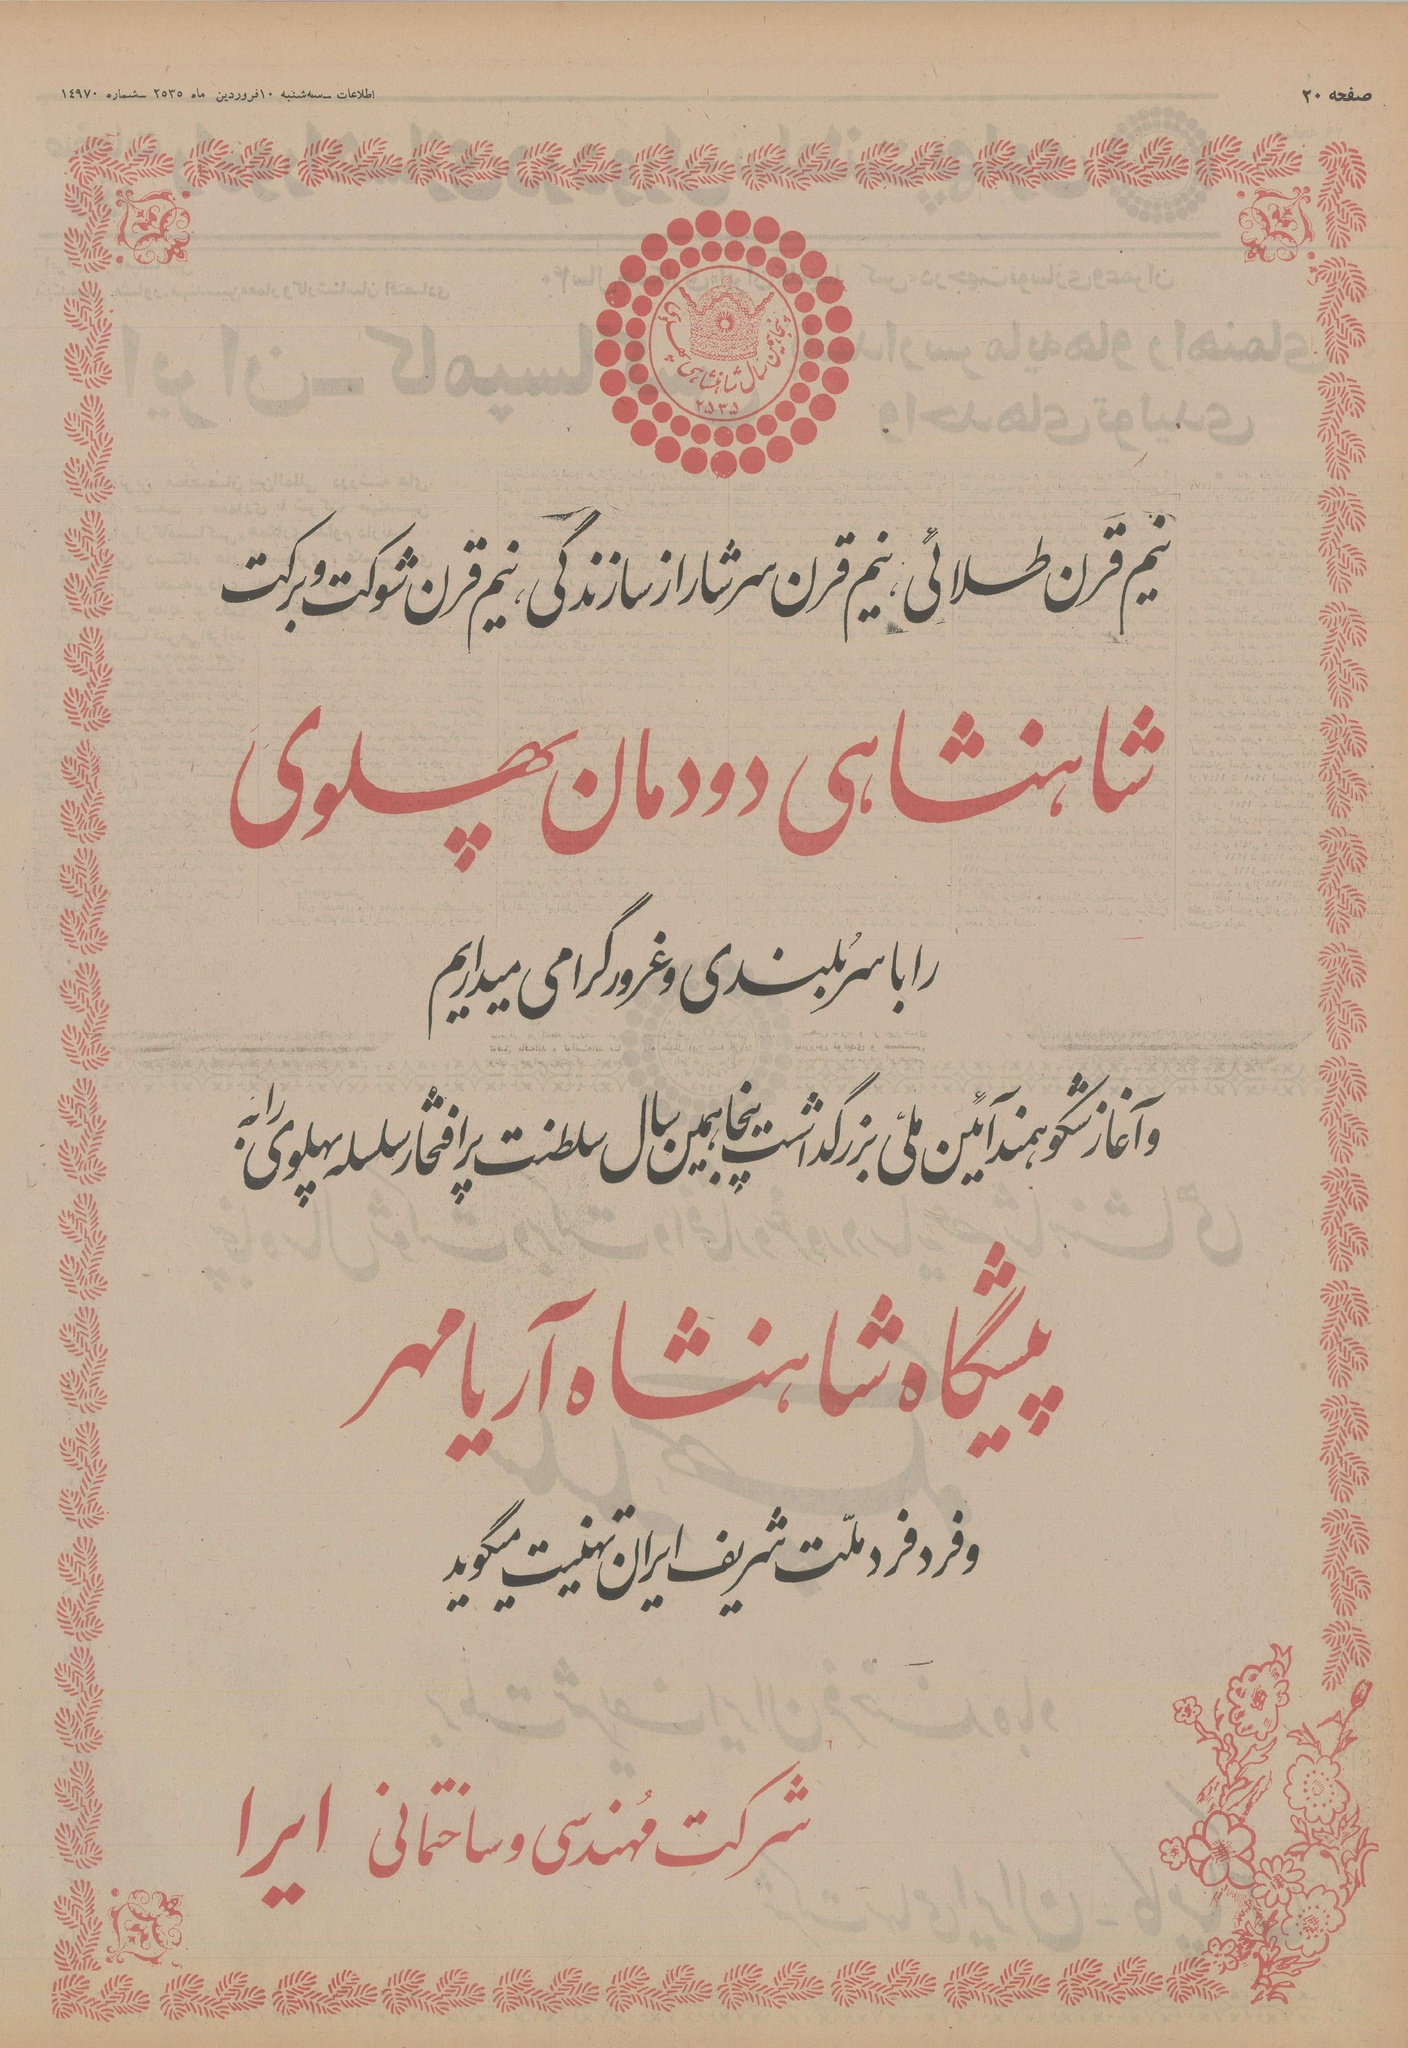 صفحه ۲۰
اطلاعات ــ سه‌شنبه ۱۰ فروردین ماه ۲۵۳۵ ــ شماره ۱٤۹۷۰
پنجاهمین سال شاهنشاهی پهلوی
۲۵۳۵
نیم قرن طلائی، نیم قرن سرشار از سازندگی، نیم قرن شوکت و برکت
شاهنشاهی دودمان پهلوی
را با سرُبلندی و غرور گرامی میداریم
و آغاز شکوهمند آئین ملی بزرگداشت پنجاهمین سال سلطنت پرافتخار سلسله پهلوی را به
پیشگاه شاهنشاه آریامهر
و فرد فرد ملّت شریف ایران تهنیت میگوید
شرکت مُهندسی و ساختمانی ایرا